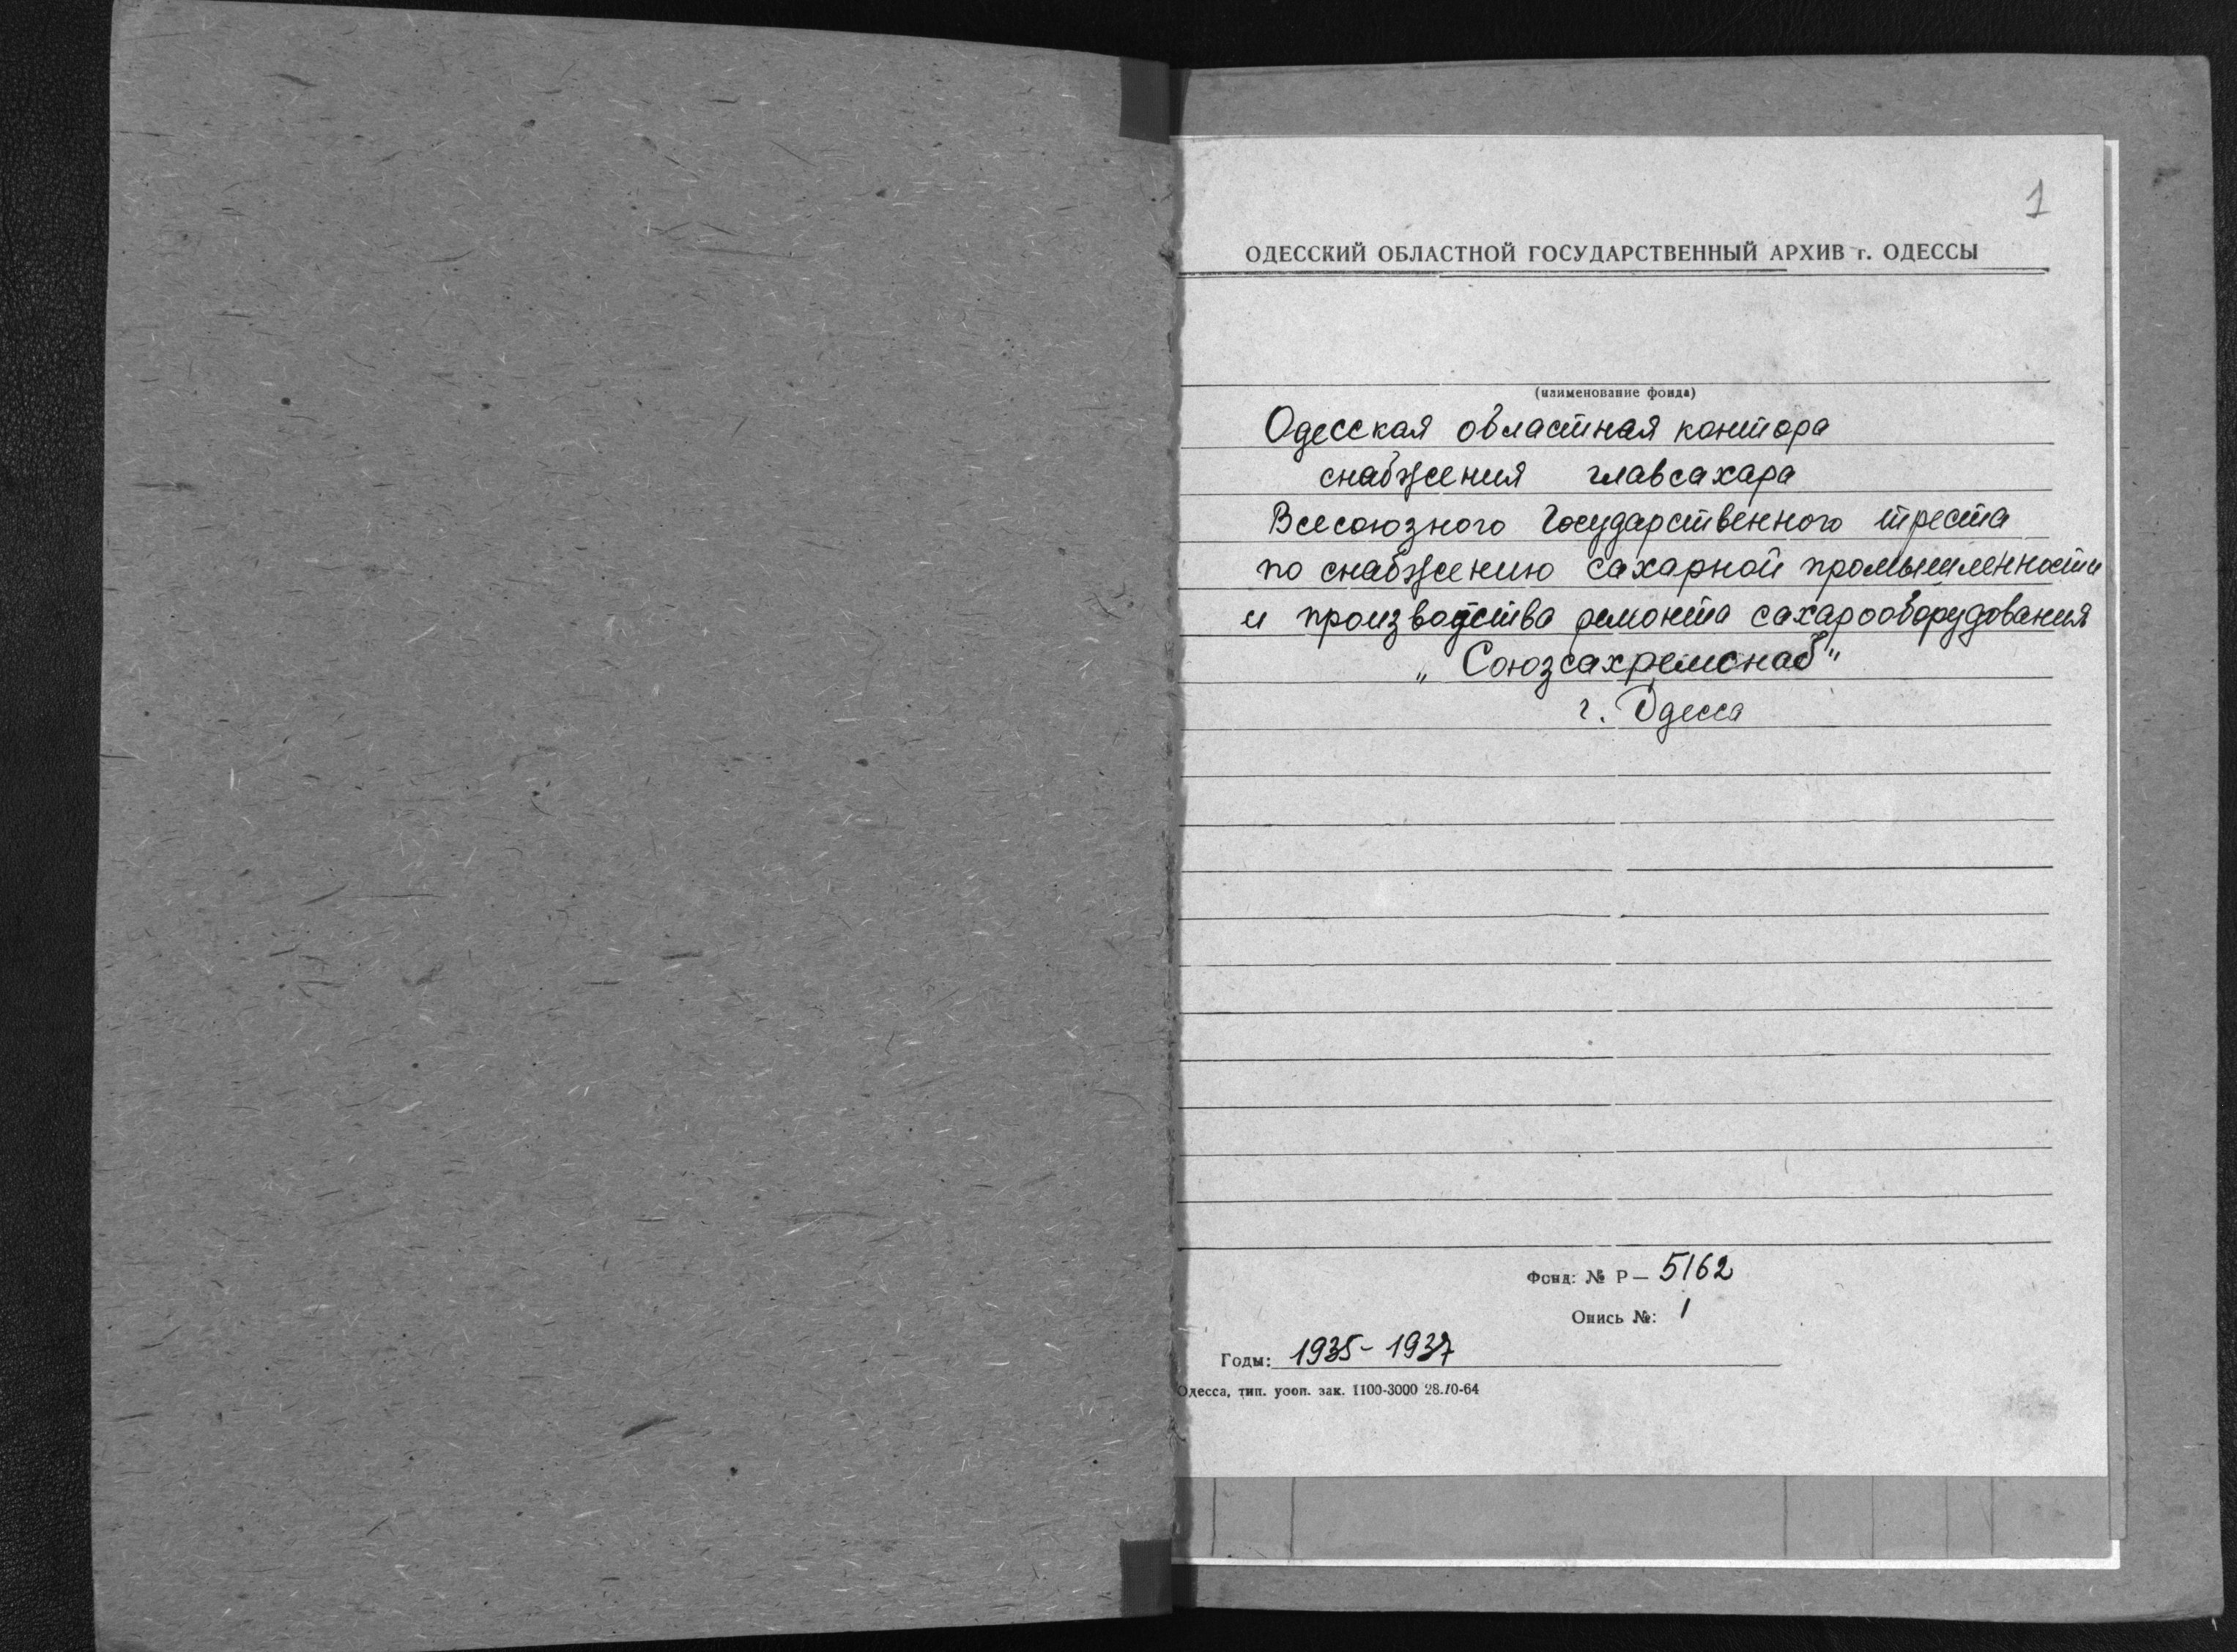 1
ОДЕССКИЙ ОБЛАСТНОЙ ГОСУДАРСТВЕННЫЙ АРХИВ г. ОДЕССЫ
(наименование фонда)
Одесская областная контора
снабжения главсахара
Всесоюзного Государственного треста
по снабжению сахарной промышленности
и производства ремонта сахарооборудования
„Союзсахремснаб"
г. Одесса
Фонд: № Р— 5162
Опись №: 1
Годы: 1935-1937
Одесса, тип. уооп. зак. 1100-3000 28.10-64